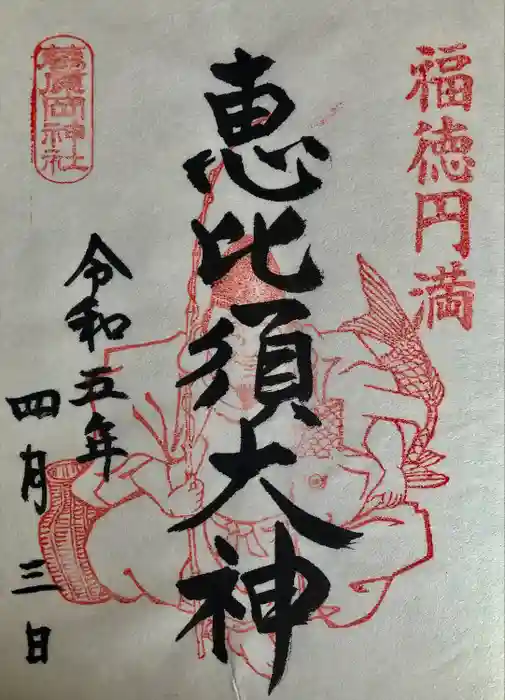 福徳円満
恵比須大神
葛原岡神社
令和五年
四月三日